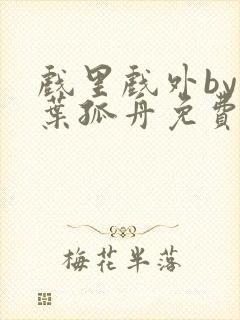 戲里戲外by
葉孤舟免費
梅花半落